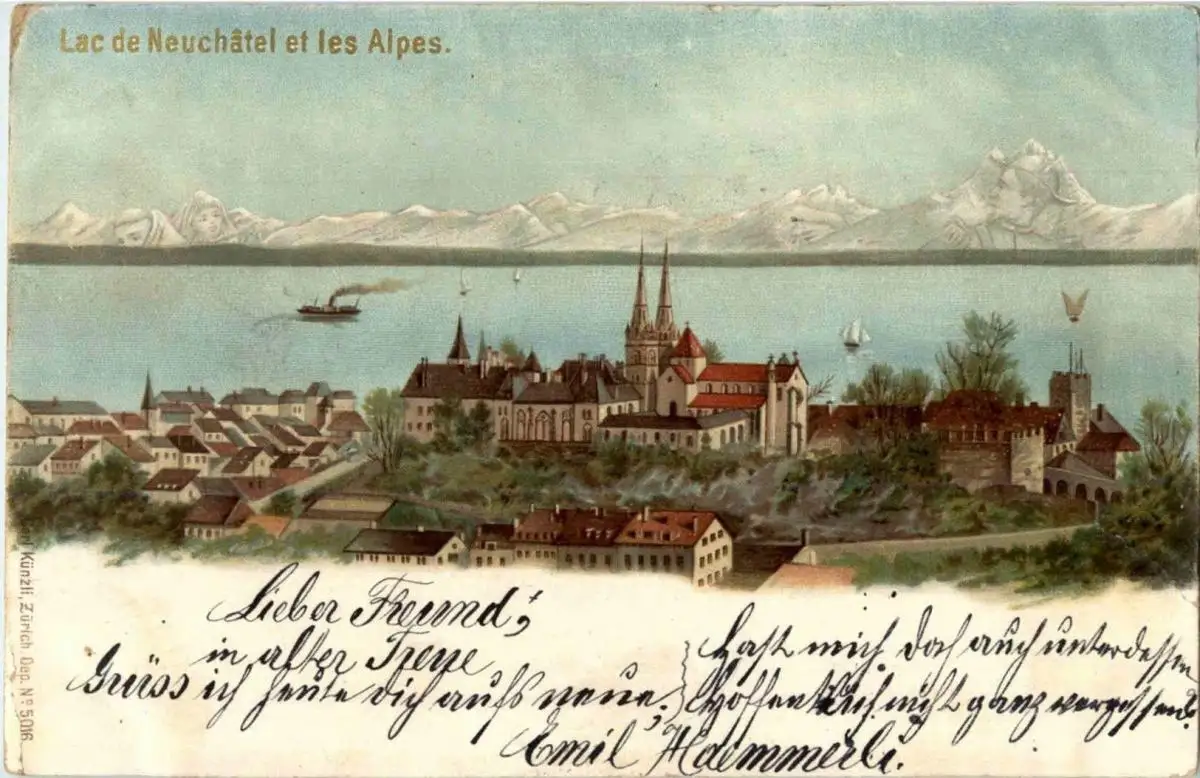 Lac de Neuchâtel et les Alpes.
Künzli, Zürich Dep. Nº 5016
Lieber Freund;
in alter Treue
Grüss ich heute dich aufs neue,
Hast mich doch auch unterdessen
Hoffentlich nicht ganz vergessen?
Emil Haemmerli.